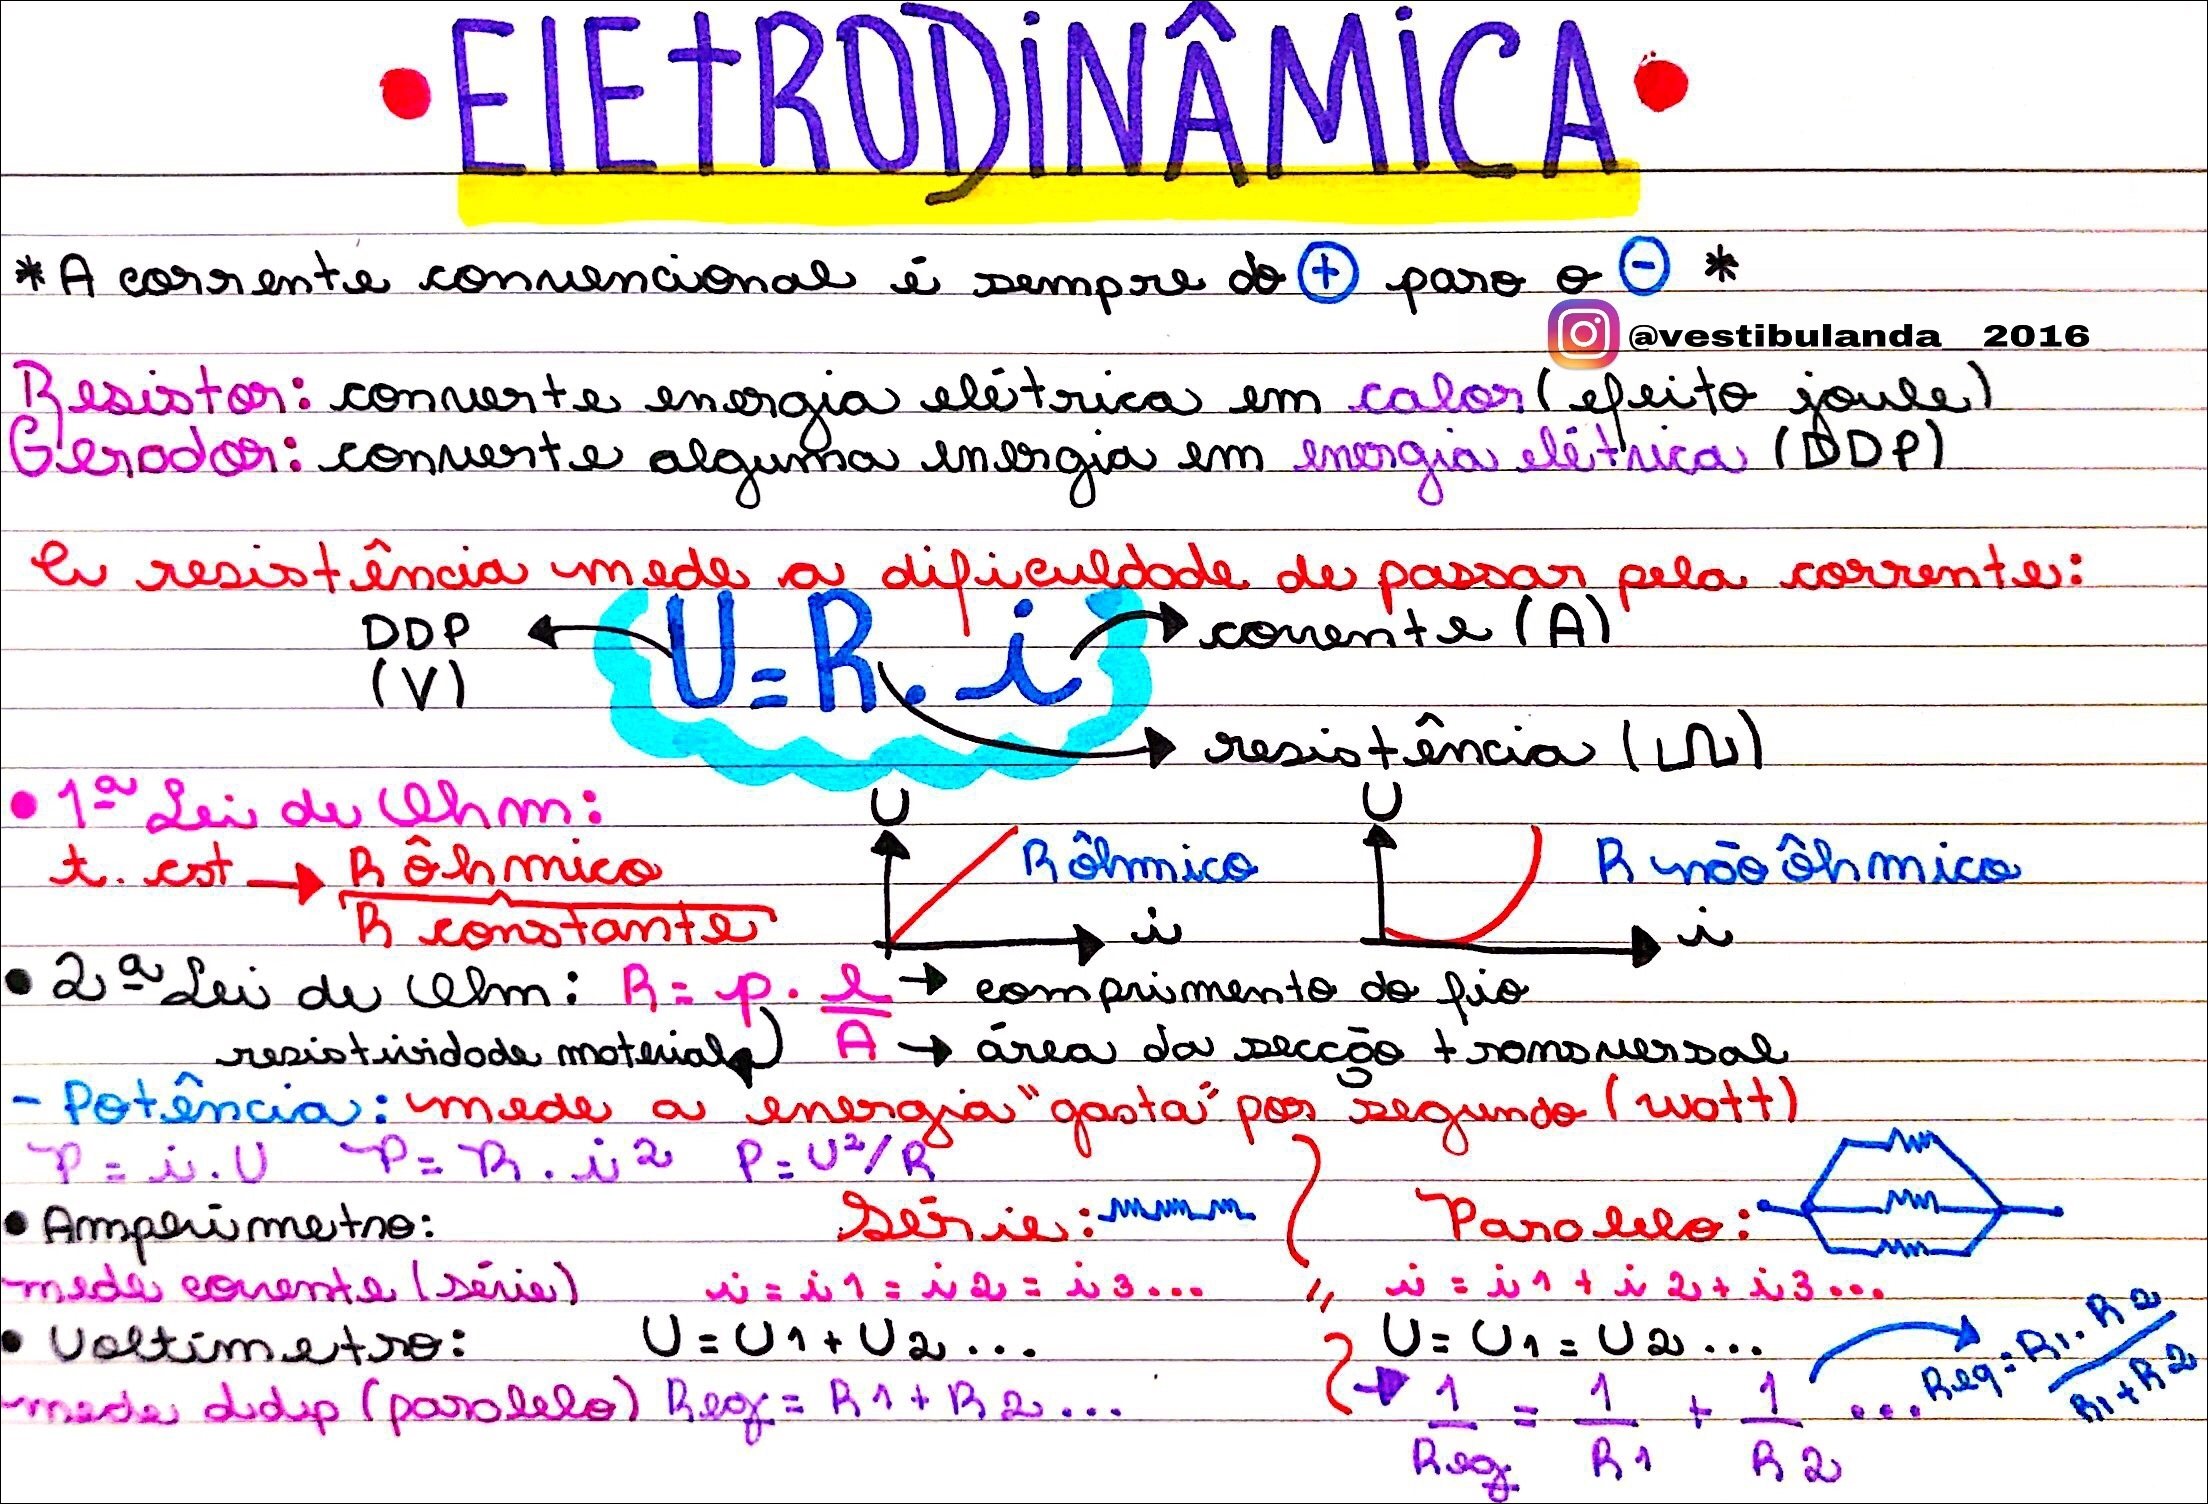 • ElEtRODiNÂMiCA •
* A corrente convencional é sempre do + para o - *
@vestibulanda_2016
Resistor: converte energia elétrica em calor (efeito joule)
Gerador: converte alguma energia em energia elétrica (DDP)
A resistência mede a dificuldade de passar pela corrente:
DDP (V)
U = R . i
corrente (A)
resistência (Ω)
• 1ª Lei de Ohm:
t. cst → R ôhmico
R constante
U
R ôhmico
i
U
R não ôhmico
i
• 2ª Lei de Ohm: R = p . l/A
→ comprimento do fio
→ área da secção transversal
resistividade material
- Potência: mede a energia "gasta" por segundo (watt)
P = i . U P = R . i² P = U²/R
• Amperímetro:
mede corrente (série)
• Voltímetro:
mede ddp (paralelo)
Série:
i = i1 = i2 = i3...
U = U1 + U2 ...
Req = R1 + R2 ...
Paralelo:
i = i1 + i2 + i3...
U = U1 = U2 ...
1/Req = 1/R1 + 1/R2 ...
Req = R1 . R2 / R1 + R2